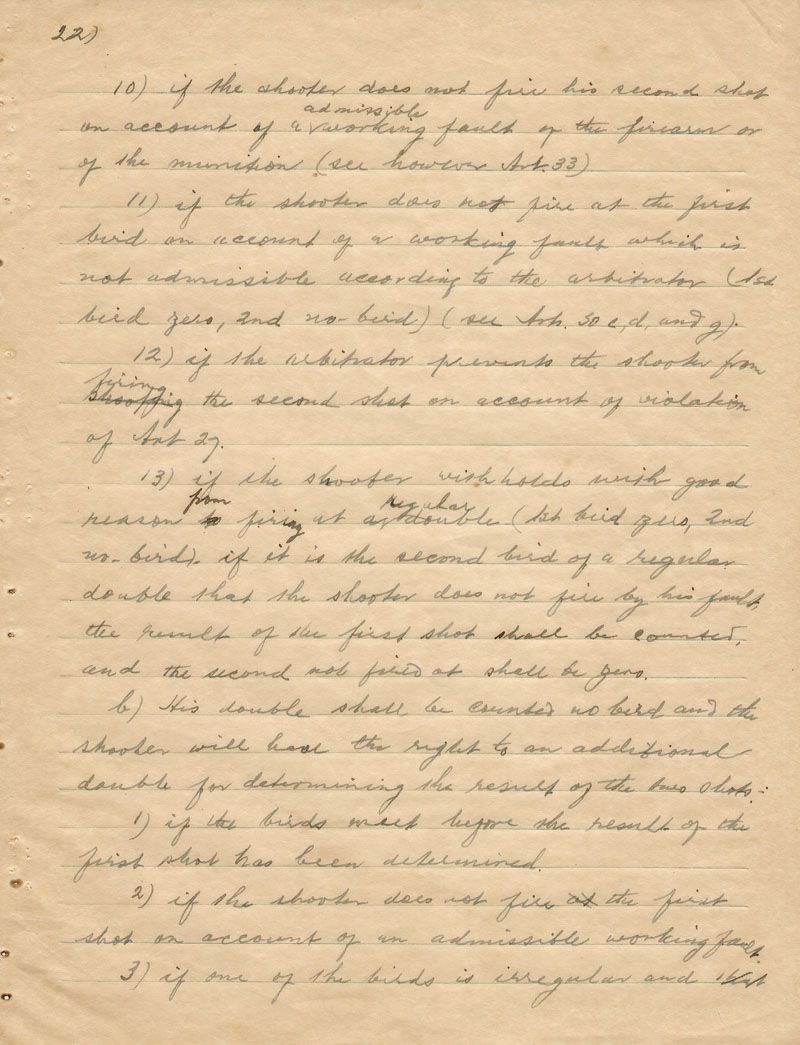 22)
10) if the shooter does not fire his second shot
on account of a admissible working fault of the firearm or
of the munition (see however Art. 33)
11) if the shooter does not fire at the first
bird on account of a working fault which is
not admissible according to the arbitrator (1st
bird zero, 2nd no-bird) (see Art. 30 c, d, and g).
12) if the arbitrator prevents the shooter from
firing
shooting the second shot on account of violation
of Art 27.
13) if the shooter withholds with good
reason from firing at a regular double (1st bird zero, 2nd
no-bird). if it is the second bird of a regular
double that the shooter does not fire by his fault,
the result of the first shot shall be counted,
and the second not fired at shall be zero.
b) His double shall be counted no bird and the
shooter will have the right to an additional
double for determining the result of the two shots:
1) if the birds meet before the result of the
first shot has been determined.
2) if the shooter does not fire at the first
shot on account of an admissible working fault.
3) if one of the birds is irregular and